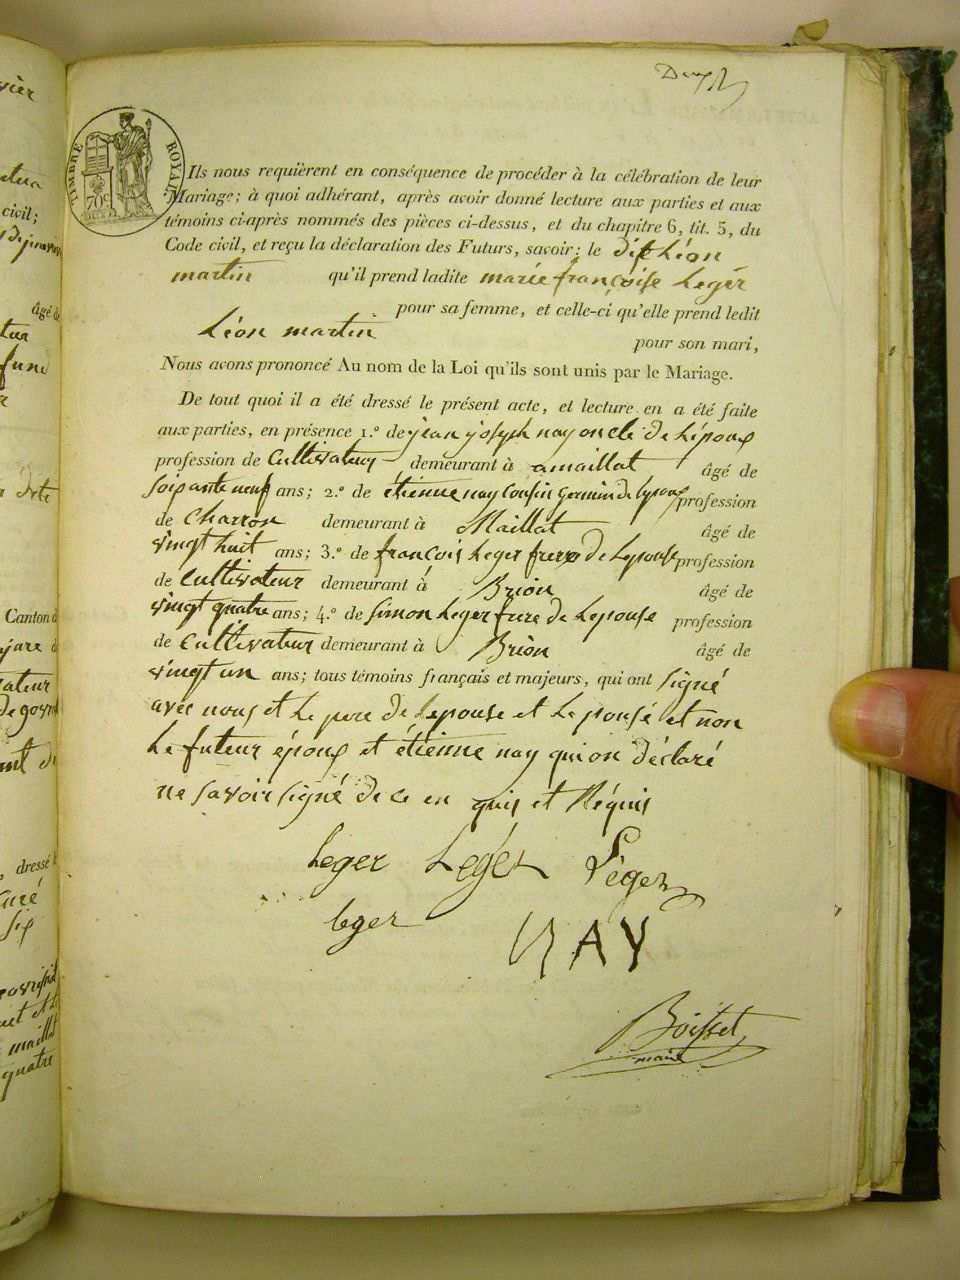 vier
civil;
âgé de
Canton d
dressé
quatre
maillat
Deux
TIMBRE ROYAL
70c
Ils nous requièrent en conséquence de procéder à la célébration de leur
Mariage; à quoi adhérant, après avoir donné lecture aux parties et aux
témoins ci-après nommés des pièces ci-dessus, et du chapitre 6, tit. 5, du
Code civil, et reçu la déclaration des Futurs, savoir: le dit Léon
martin qu'il prend ladite marie françoise Leger
pour sa femme, et celle-ci qu'elle prend ledit
Léon martin
pour son mari,
Nous avons prononcé Au nom de la Loi qu'ils sont unis par le Mariage.
De tout quoi il a été dressé le présent acte, et lecture en a été faite
aux parties, en présence 1.º de jean joseph nay oncle de Lépoux
profession de Cultivateur demeurant à amaillat âgé de
soixante neuf ans; 2.º de étienne nay Cousin Germin de lepoux profession
de Charron demeurant à Maillat âgé de
vingt huit ans; 3.º de françois Leger frere de Lepouse profession
de Cultivateur demeurant à Brion âgé de
vingt quatre ans; 4.º de simon Leger frere de Lepouse profession
de Cultivateur demeurant à Brion âgé de
vingt un ans; tous témoins français et majeurs, qui ont signé
avec nous et Le pere de Lepouse et Lepousé et non
Le futeur époux et étienne nay qui on déclaré
ne savoir signé de ce en quis et Réquis
Leger Leger Léger
leger NAY
Boisset
maire